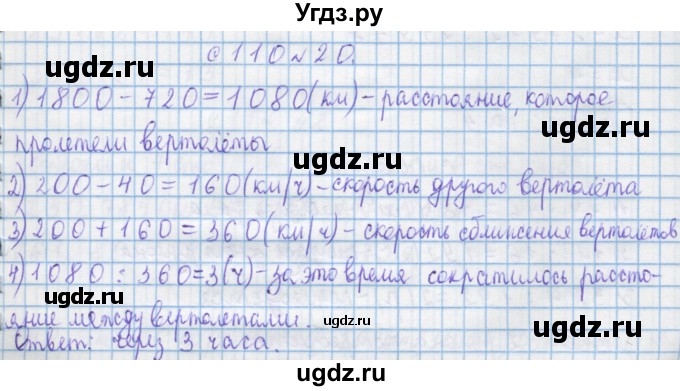 Угдз.ру
с 110 № 20.
1) 1800 - 720 = 1080 (км) - расстояние, которое
пролетели вертолёты
2) 200 - 40 = 160 (км/ч) - скорость другого вертолёта
3) 200 + 160 = 360 (км/ч) - скорость сближения вертолётов
4) 1080 : 360 = 3 (ч) - за это время сократилось рассто-
яние между вертолетами.
Ответ: через 3 часа.
ugdz.ru
ugdz.ru
ugdz.ru
ugdz.ru
ugdz.ru
ugdz.ru
ugdz.ru
ugdz.ru
ugdz.ru
ugdz.ru
ugdz.ru
ugdz.ru